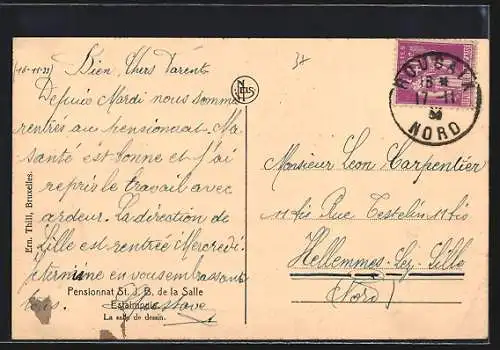 (16-11-33)
Bien Chers Parents
Depuis Mardi nous somme
rentrés au pensionnat. Ma
santé est bonne et j'ai
repris le travail avec
ardeur. La direction de
Lille est rentrée Mercredi.
je termine en vous embrassant
tous. Gustave
Pensionnat St. J. B. de la Salle
Estaimpuis
La salle de dessin.
Ern. Thill, Bruxelles.
NELS
ROUBAIX
18 *
17-11
33
NORD
POSTES
Monsieur Leon Carpentier
11 bis Rue Testelin 11 bis
Hellemmes-Lez-Lille
(Nord)